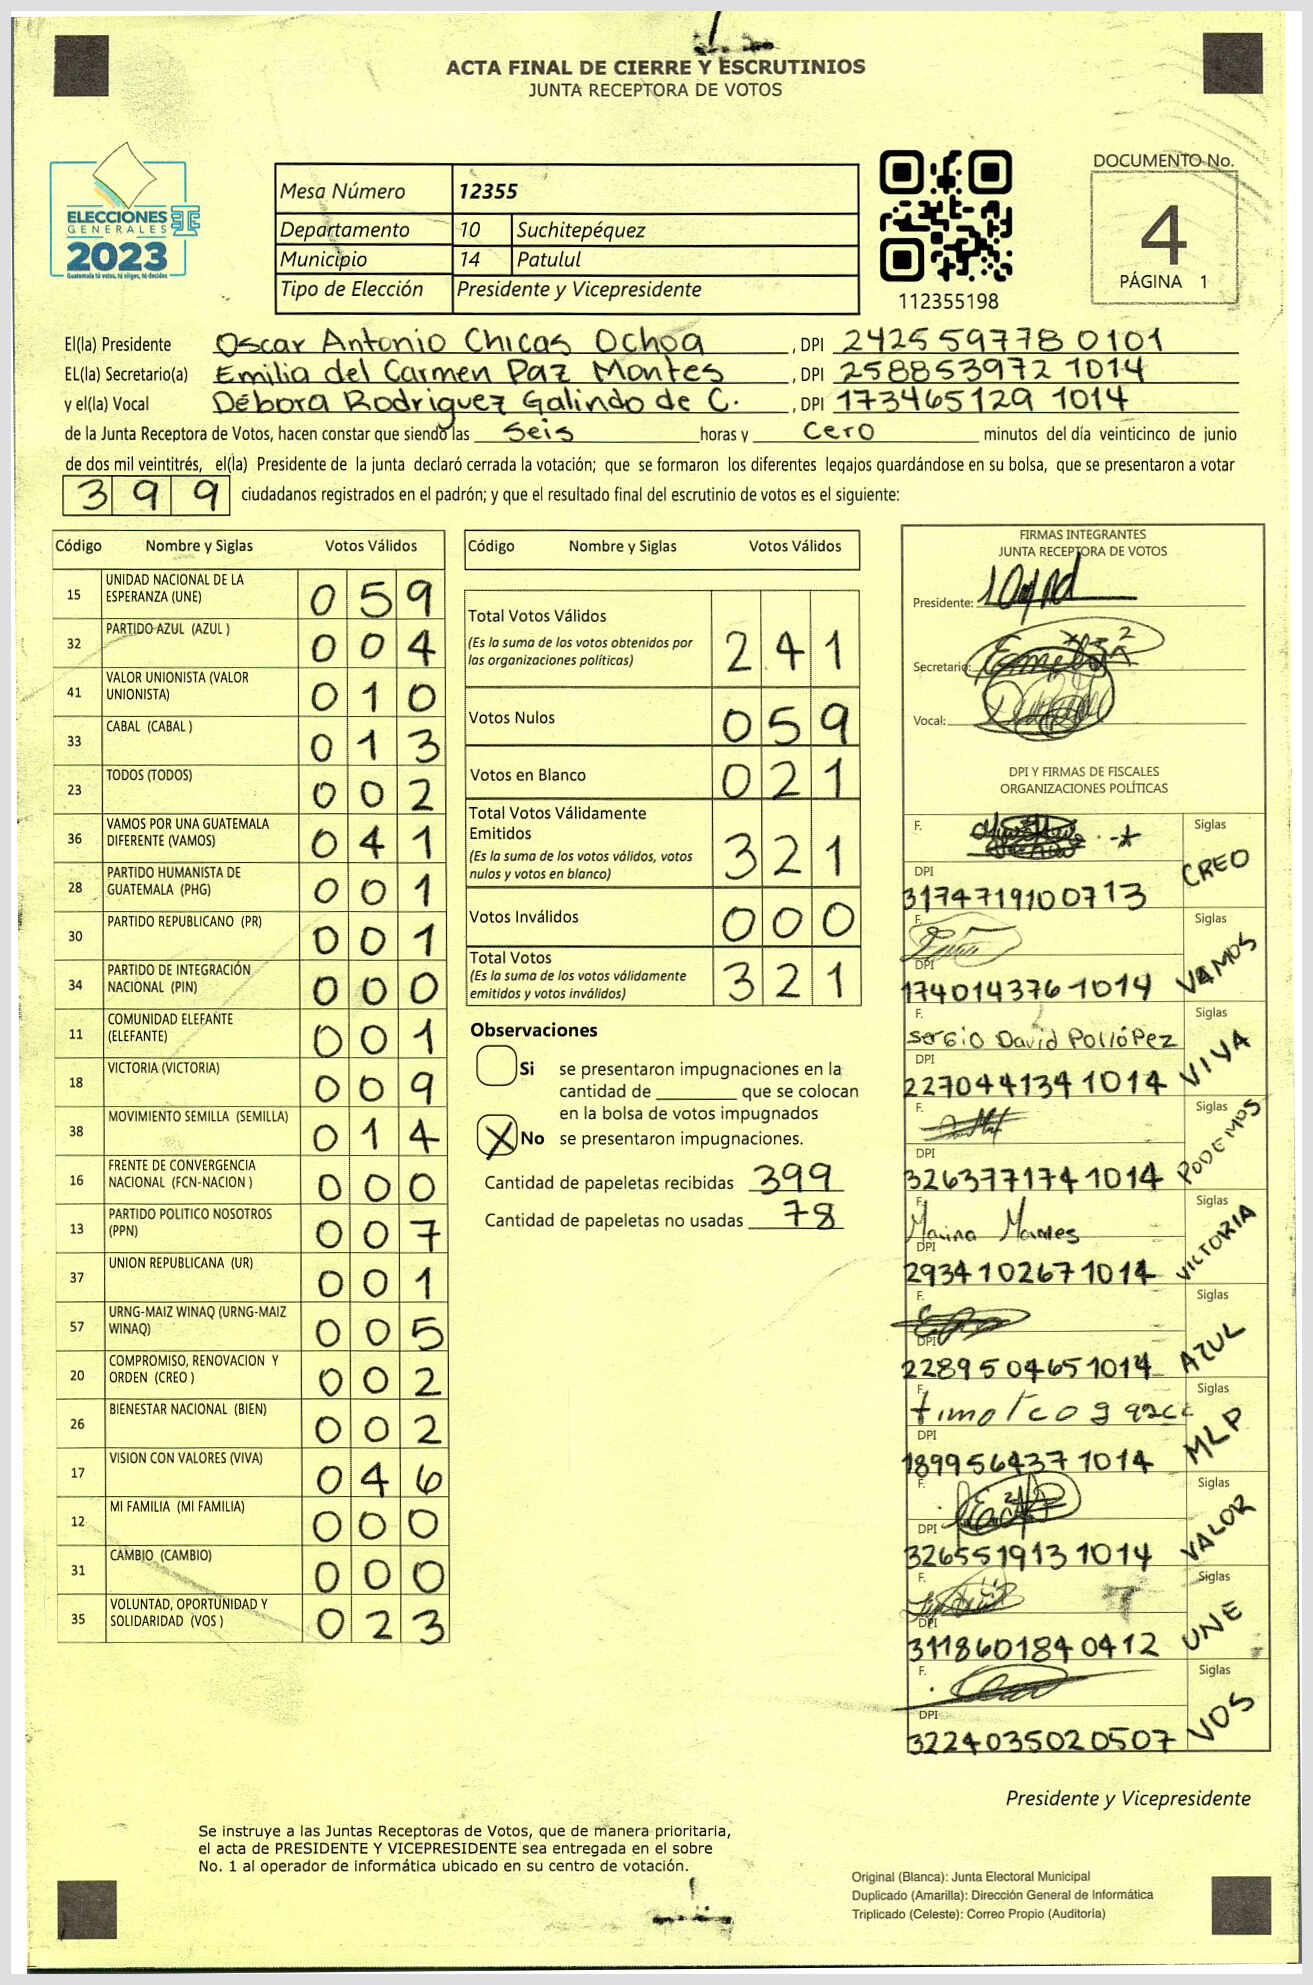 ACTA FINAL DE CIERRE Y ESCRUTINIOS
JUNTA RECEPTORA DE VOTOS
ELECCIONES
GENERALES
2023
Guatemala tú votas, tú eliges, tú decides
Mesa Número 12355
Departamento 10 Suchitepéquez
Municipio 14 Patulul
Tipo de Elección Presidente y Vicepresidente
112355198
DOCUMENTO No.
4
PÁGINA 1
El(la) Presidente Oscar Antonio Chicas Ochoa, DPI 2425 59778 0101
EL(la) Secretario(a) Emilia del Carmen Paz Montes, DPI 258853972 1014
y el(la) Vocal Débora Rodriguez Galindo de C., DPI 173465129 1014
de la Junta Receptora de Votos, hacen constar que siendo las seis horas y cero minutos del día veinticinco de junio
de dos mil veintitrés, el(la) Presidente de la junta declaró cerrada la votación; que se formaron los diferentes legajos guardándose en su bolsa, que se presentaron a votar
399 ciudadanos registrados en el padrón; y que el resultado final del escrutinio de votos es el siguiente:
Código Nombre y Siglas Votos Válidos
15 UNIDAD NACIONAL DE LA ESPERANZA (UNE) 059
32 PARTIDO AZUL (AZUL ) 004
41 VALOR UNIONISTA (VALOR UNIONISTA) 010
33 CABAL (CABAL ) 013
23 TODOS (TODOS) 002
36 VAMOS POR UNA GUATEMALA DIFERENTE (VAMOS) 041
28 PARTIDO HUMANISTA DE GUATEMALA (PHG) 001
30 PARTIDO REPUBLICANO (PR) 001
34 PARTIDO DE INTEGRACIÓN NACIONAL (PIN) 000
11 COMUNIDAD ELEFANTE (ELEFANTE) 001
18 VICTORIA (VICTORIA) 009
38 MOVIMIENTO SEMILLA (SEMILLA) 014
16 FRENTE DE CONVERGENCIA NACIONAL (FCN-NACION ) 000
13 PARTIDO POLITICO NOSOTROS (PPN) 007
37 UNION REPUBLICANA (UR) 001
57 URNG-MAIZ WINAQ (URNG-MAIZ WINAQ) 005
20 COMPROMISO, RENOVACION Y ORDEN (CREO ) 002
26 BIENESTAR NACIONAL (BIEN) 002
17 VISION CON VALORES (VIVA) 046
12 MI FAMILIA (MI FAMILIA) 000
31 CAMBIO (CAMBIO) 000
35 VOLUNTAD, OPORTUNIDAD Y SOLIDARIDAD (VOS ) 023
Código Nombre y Siglas Votos Válidos
Total Votos Válidos 241
(Es la suma de los votos obtenidos por
las organizaciones políticas)
Votos Nulos 059
Votos en Blanco 021
Total Votos Válidamente
Emitidos 321
(Es la suma de los votos válidos, votos
nulos y votos en blanco)
Votos Inválidos 000
Total Votos 321
(Es la suma de los votos válidamente
emitidos y votos inválidos)
Observaciones
Si se presentaron impugnaciones en la
cantidad de ________ que se colocan
en la bolsa de votos impugnados
X No se presentaron impugnaciones.
Cantidad de papeletas recibidas 399
Cantidad de papeletas no usadas 78
FIRMAS INTEGRANTES
JUNTA RECEPTORA DE VOTOS
Presidente:
Secretario:
Vocal:
DPI Y FIRMAS DE FISCALES
ORGANIZACIONES POLÍTICAS
F. Siglas CREO
DPI
3174719100713
F. Siglas VAMOS
DPI
174014376 1014
F. Siglas VIVA
Sergio David Pollópez
DPI
227044134 1014
F. Siglas PODEMOS
DPI
326377174 1014
F. Siglas VICTORIA
Marina Morales
DPI
2934102671014
F. Siglas AZUL
DPI
2289504651014
F. Siglas MLP
timoteo
DPI
189956437 1014
F. Siglas VALOR
DPI
326551913 1014
F. Siglas UNE
DPI
3118601840412
F. Siglas VOS
DPI
3224035020507
Presidente y Vicepresidente
Se instruye a las Juntas Receptoras de Votos, que de manera prioritaria,
el acta de PRESIDENTE Y VICEPRESIDENTE sea entregada en el sobre
No. 1 al operador de informática ubicado en su centro de votación.
Original (Blanca): Junta Electoral Municipal
Duplicado (Amarilla): Dirección General de Informática
Triplicado (Celeste): Correo Propio (Auditoría)